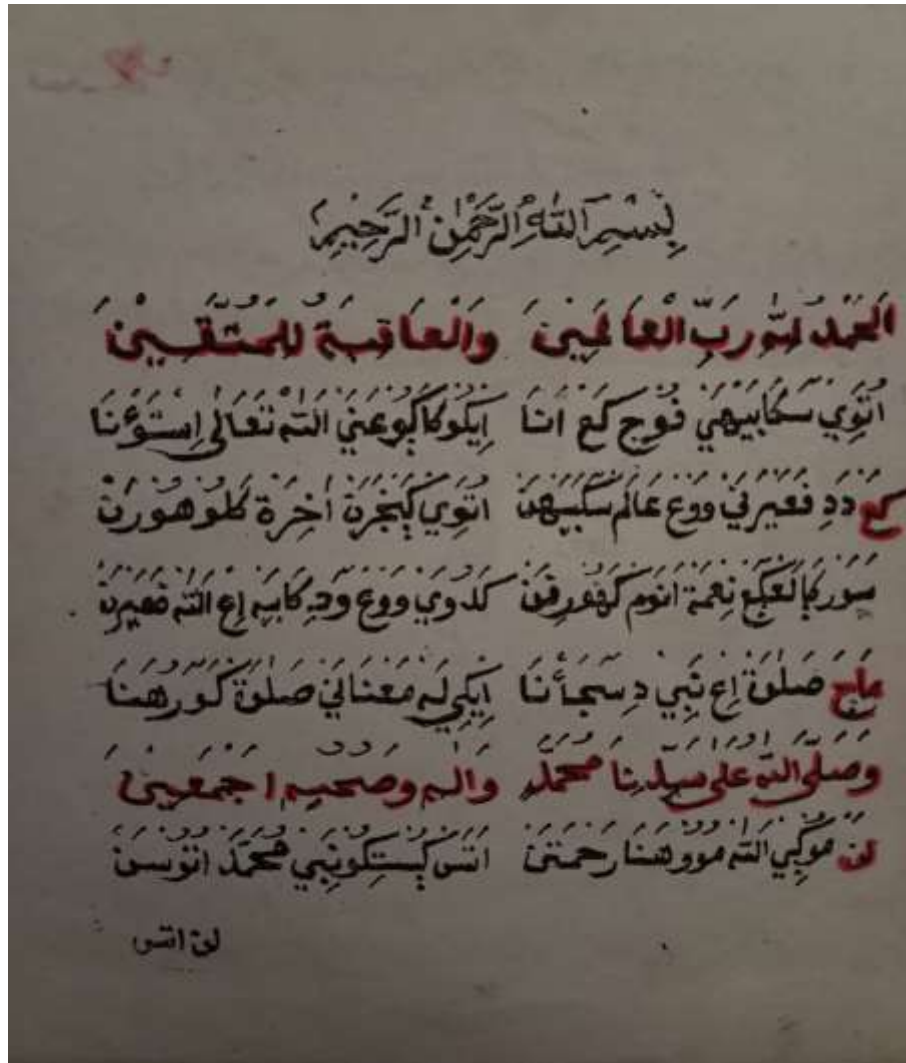 بسم الله الرحمن الرحيم
الحمد لله رب العالمين والعاقبة للمتقين
اتوي سكابيهي فوج كع انا ايكو كاكوعني الله تعالى استونا
كع دد فعيرني ووع عالم سكبيهن اتوي كبنجرن اخرة كلوهورن
سوركا لعكع نعمة انوم كهفورفن كدوي ووع ود كابيه اع الله فعيرن
ماج صلوة اع نبي د سجأنا ايكي له معناني صلوة كورهنا
وصلى الله على سيدنا محمد واله وصحبه اجمعين
لن موكي الله مووهنا رحمتن اتس كبستكو نبي محمد اتوسن
لن اتس